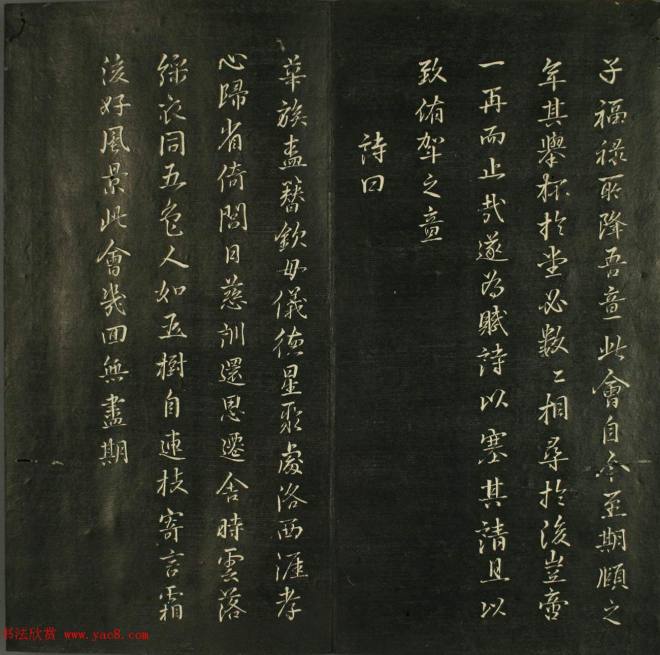 子福祿所降吾意此會自今至期頤之
年其舉杯於堂必數〻相尋於後豈啻
一再而止哉遂為賦詩以塞其請且以
致侑賀之意
詩曰
華族盍簪欽母儀德星聚處洛西涯孝
心歸省倚閭日慈訓還思遷舍時雲落
綵衣同五色人如玉樹自連枝寄言霜
後好風景此會幾回無盡期
书法欣赏 www.yac8.com